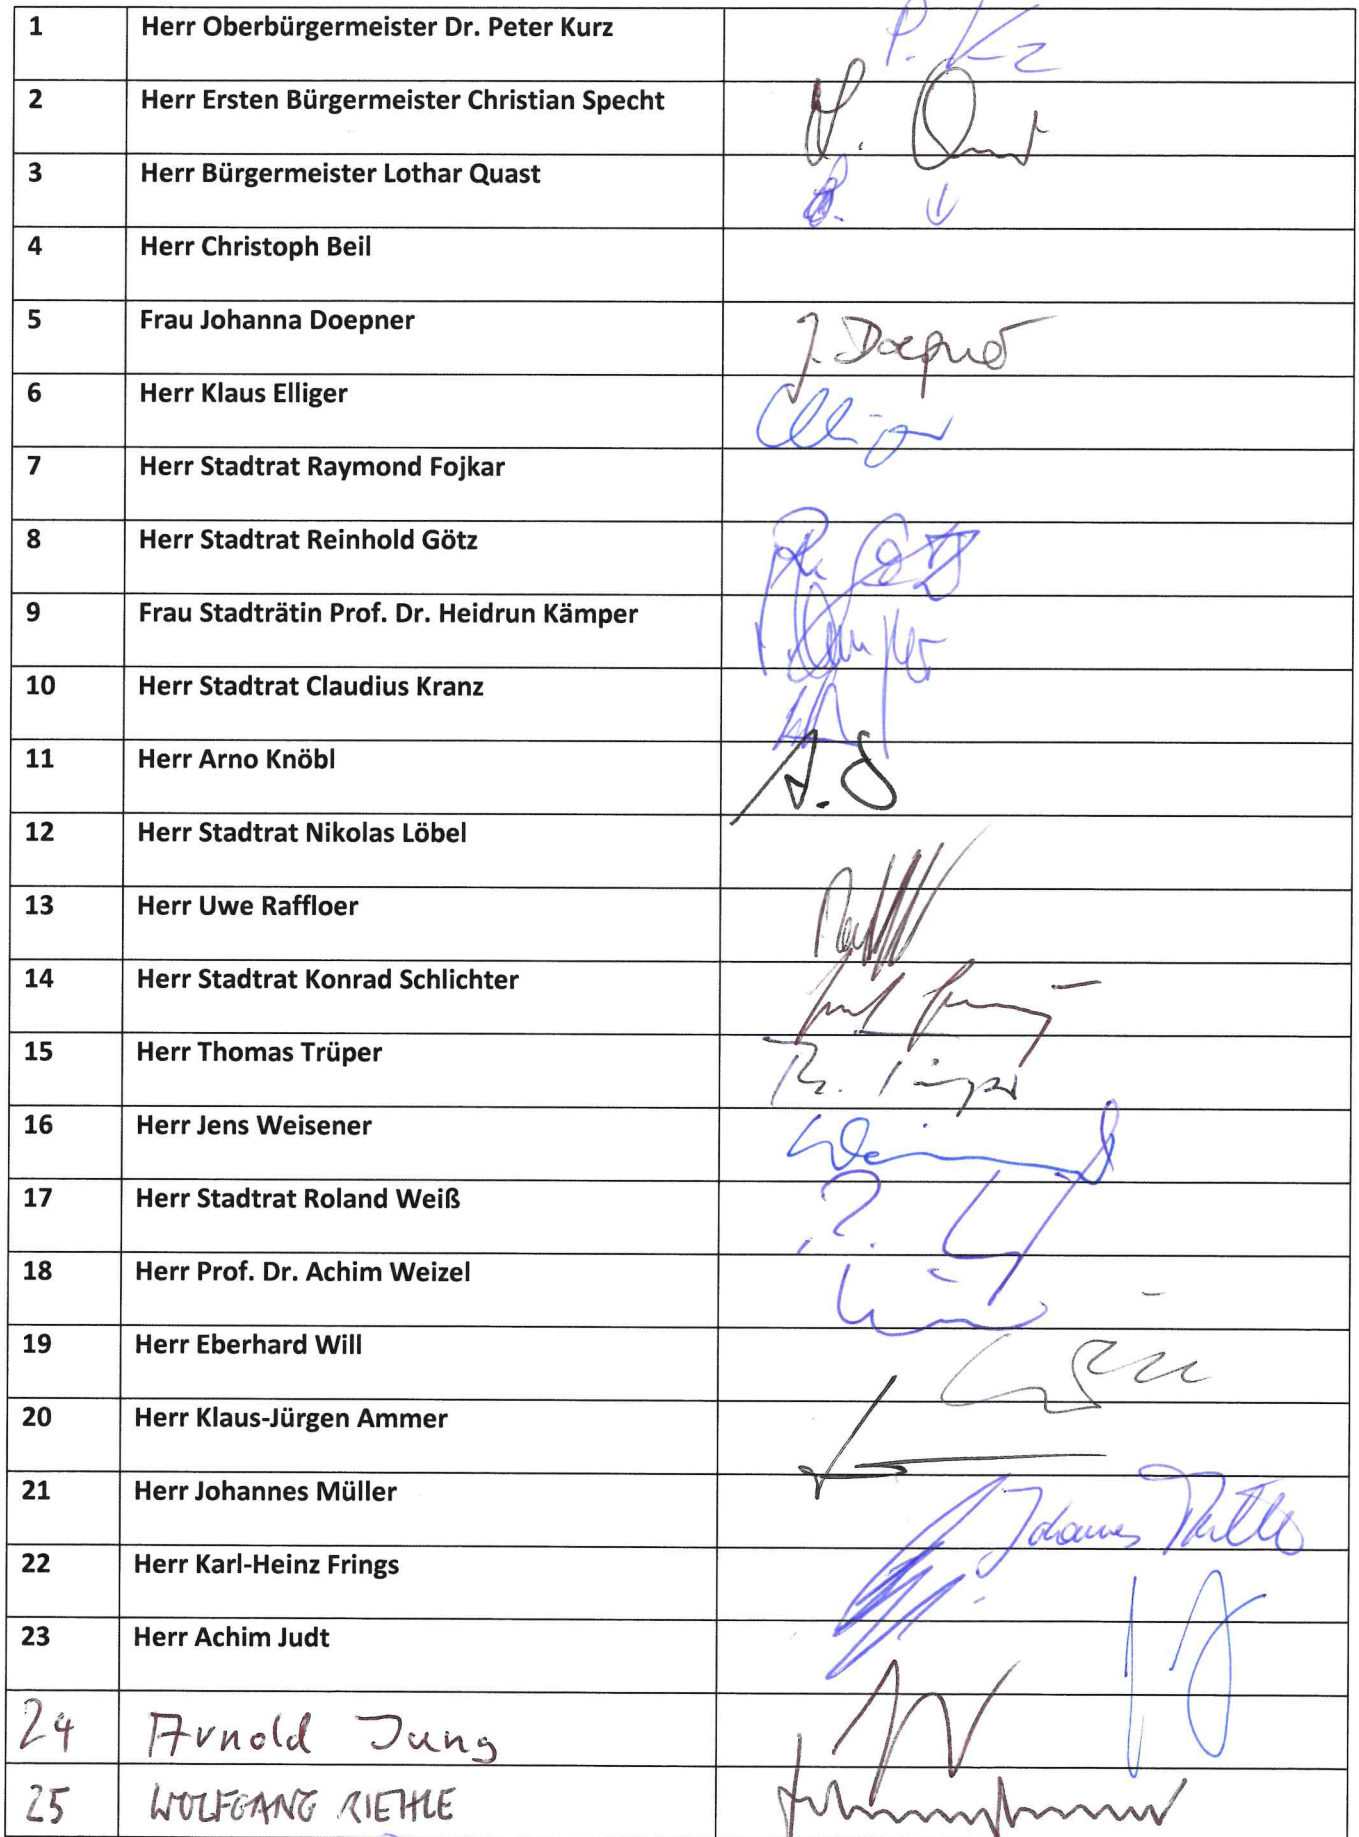 1 Herr Oberbürgermeister Dr. Peter Kurz P. Kz
2 Herr Ersten Bürgermeister Christian Specht
3 Herr Bürgermeister Lothar Quast
4 Herr Christoph Beil
5 Frau Johanna Doepner J. Doepner
6 Herr Klaus Elliger Elliger
7 Herr Stadtrat Raymond Fojkar
8 Herr Stadtrat Reinhold Götz Götz
9 Frau Stadträtin Prof. Dr. Heidrun Kämper
10 Herr Stadtrat Claudius Kranz
11 Herr Arno Knöbl
12 Herr Stadtrat Nikolas Löbel
13 Herr Uwe Raffloer
14 Herr Stadtrat Konrad Schlichter
15 Herr Thomas Trüper
16 Herr Jens Weisener
17 Herr Stadtrat Roland Weiß
18 Herr Prof. Dr. Achim Weizel
19 Herr Eberhard Will
20 Herr Klaus-Jürgen Ammer
21 Herr Johannes Müller Johannes Müller
22 Herr Karl-Heinz Frings
23 Herr Achim Judt
24 Arnold Jung
25 WOLFGANG RIEHLE